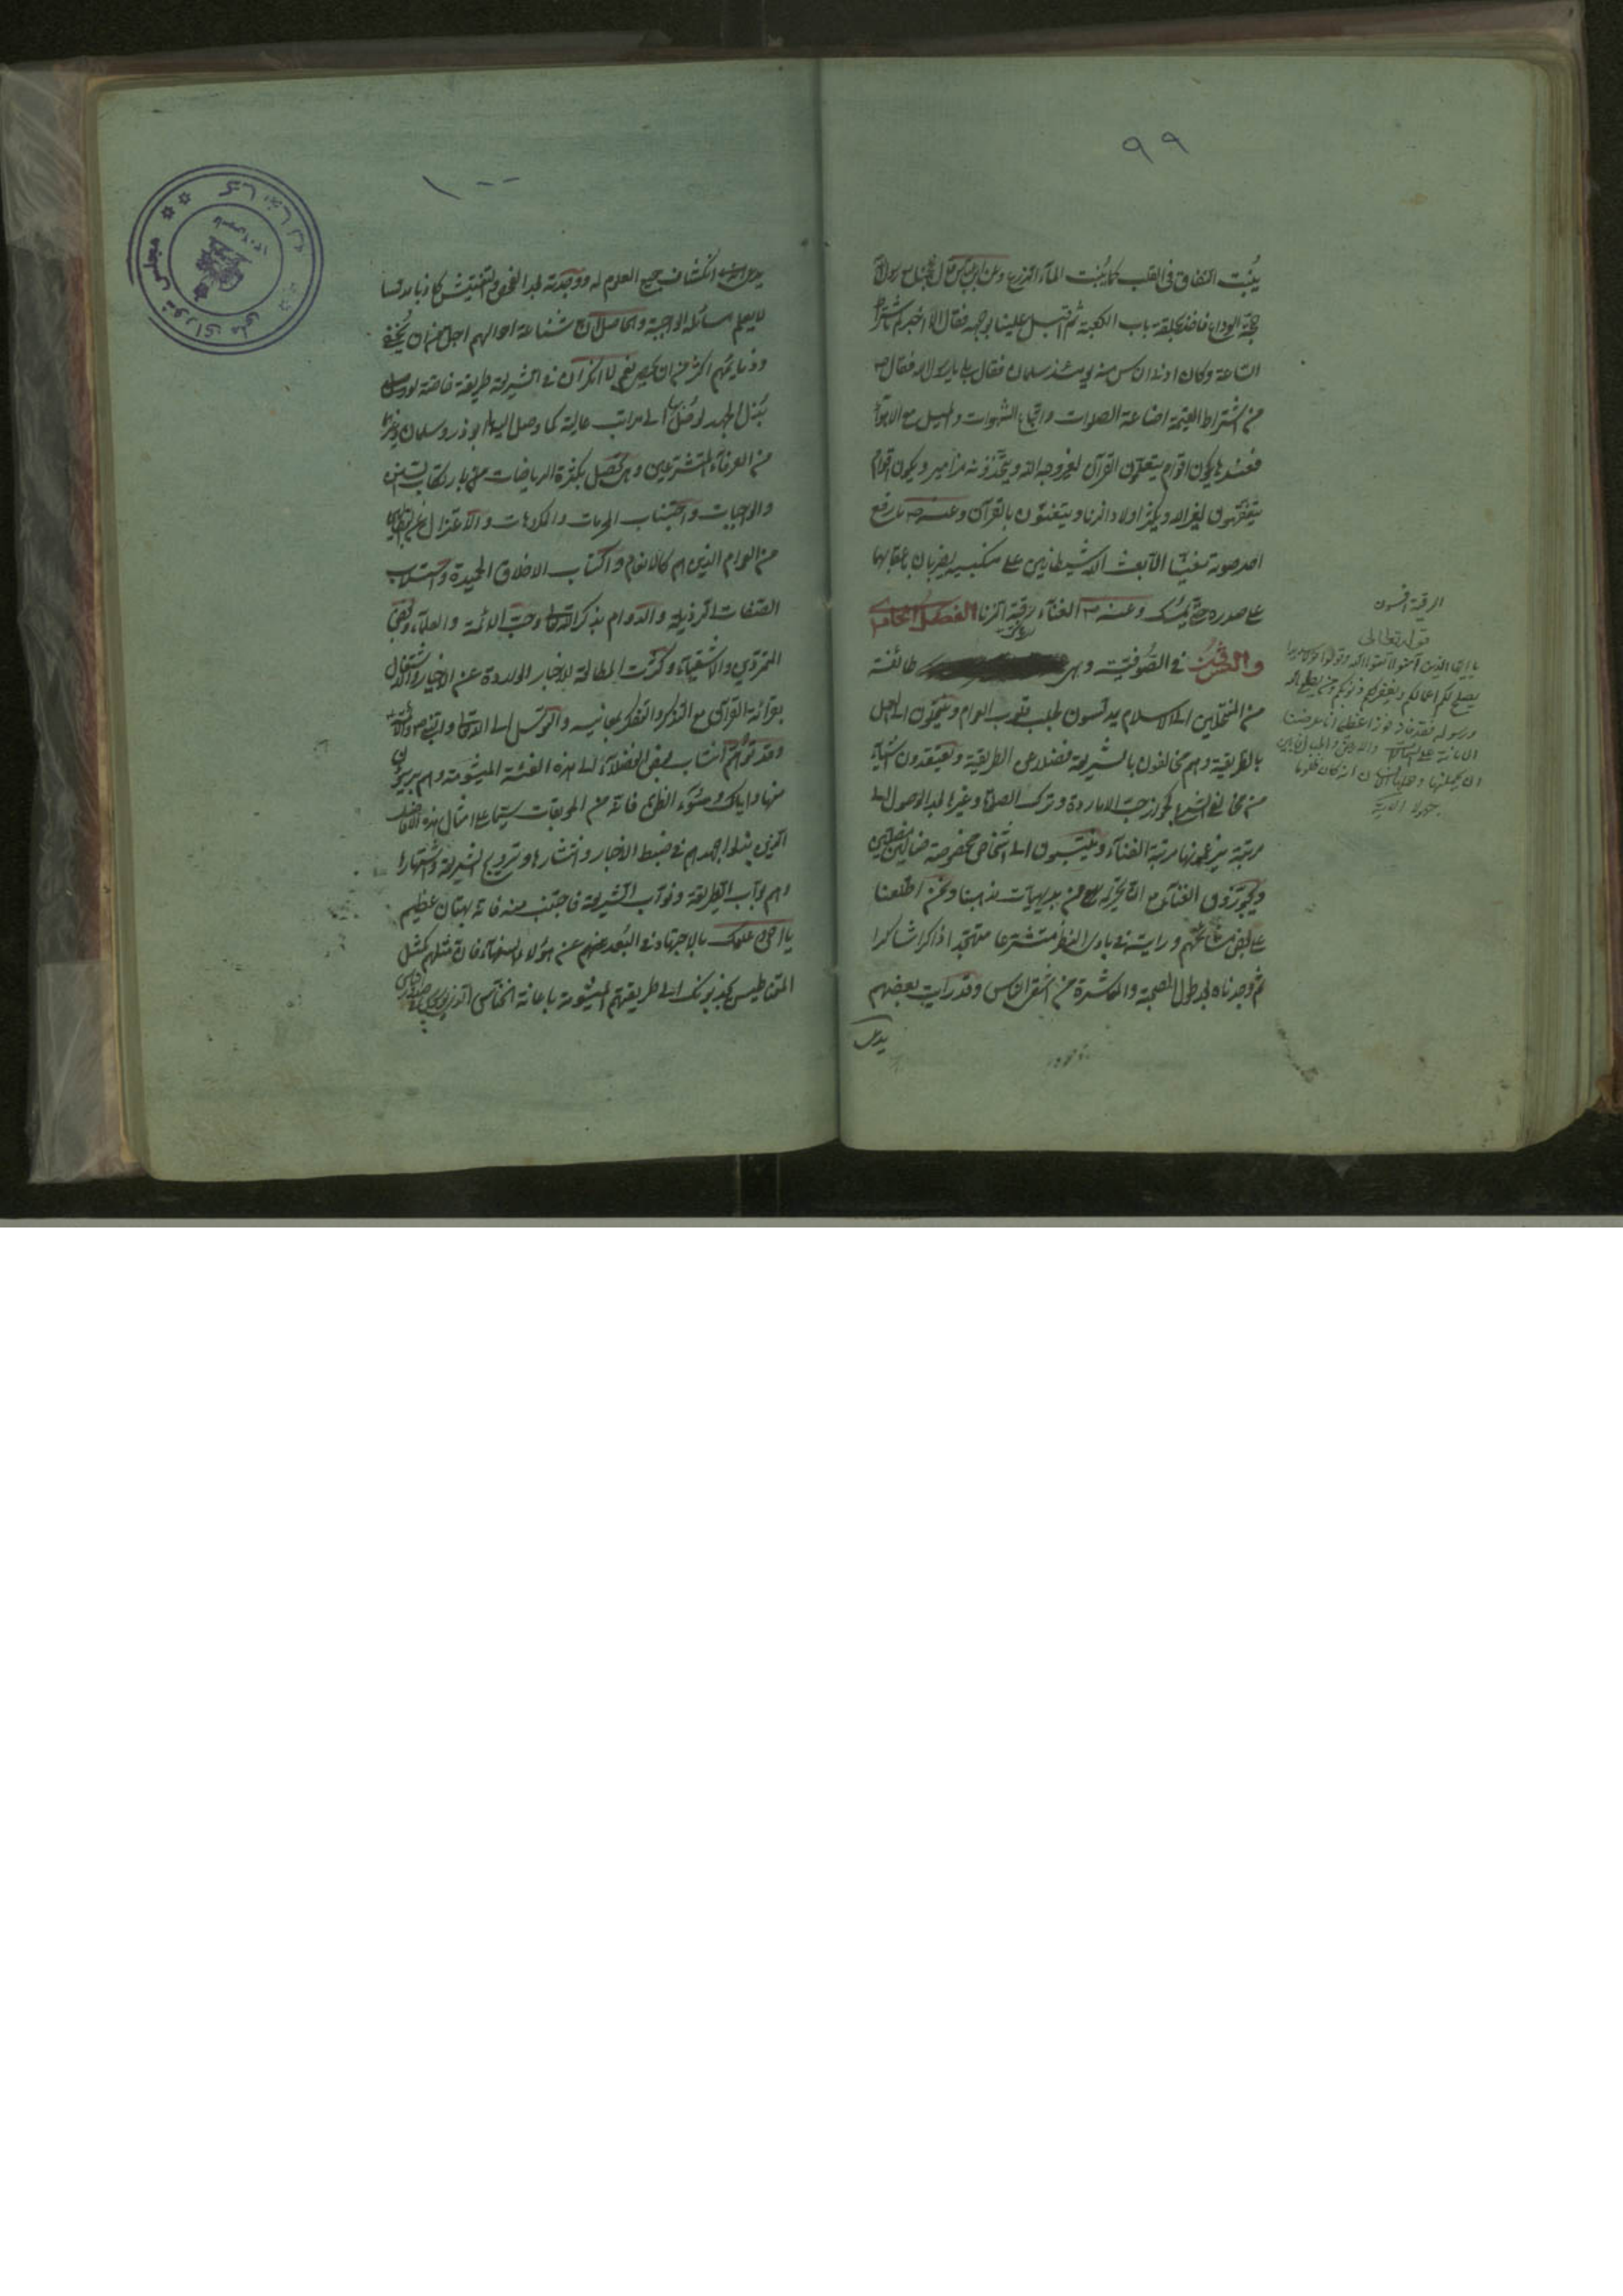 ٩٩
ينبت النفاق في القلب كما ينبت الماء الزرع وعن ابن عباس قال حججنا مع رسول الله
حجة الوداع فاخذ بحلقة باب الكعبة ثم اقبل علينا بوجهه فقال الا اخبركم باشراط
الساعة وكان ادنى الناس منه يومئذ سلمان فقال بلى يا رسول الله فقال ص
من اشتراط القيمة اضاعة الصلوات واتباع الشهوات والميل مع الاهواء
فعندها يكون اقوام يتعلمون القرآن لغير وجه الله ويتخذونه مزامير ويكون اقوام
يتفقهون لغير الله ويكثر اولاد الزنا ويتغنون بالقرآن وعنه ص ما رفع
احد صوته تغنيا الا بعث الله شيطانين على منكبيه يضربان باعقابها
على صدره حتى يمسك وعنه ص الغناء رقية الزنا الفصل الخامس
والعشرون في الصوفية وهى طائفة
من المنتحلين الى الاسلام يدلسون لطلب قلوب العوام ويسمون اهل
بالطريقة وهم مخالفون بالشريعة فضلا عن الطريقة ويعتقدون اشياء
من مخالفى الشرع كجواز حب الاماردة وترك الصلاة وغيرها بعد الوصول الى
مرتبة يزعمونها مرتبة الفناء وينتسبون الى اشخاص مخصوصة ضالين مضلين
ويجوزون الغناء مع التحريم من بديهيات مذهبنا ونحن اطلعنا
على بعض مشائخهم ورايته في بادى النظر متشرعا متهجدا ذاكرا شاكرا
ثم وجدناه بعد طول الصحبة والمعاشرة من اشقى الناس وقد رايت بعضهم
يدعى
الرقية افسون
قوله تعالى
يا ايها الذين آمنوا اتقوا الله وقولوا قولا سديدا
يصلح لكم اعمالكم ويغفر لكم ذنوبكم ومن يطع الله
ورسوله فقد فاز فوزا عظيما انا عرضنا
الامانة على السموات والارض والجبال فابين
ان يحملنها وحملها الانسان انه كان ظلوما
جهولا الآية
١٠٠
يدعى انكشاف جميع العلوم له ووجدته بعد الفحص والتفتيش كاذبا مدلسا
لا يعلم مسائله الواجبة والحاصل ان شناعة احوالهم اجل من ان يخفى
وذمائمهم اكثر من ان يحصى نعم لا انكر ان في الشريعة طريقة خاصة
بذل الجهد لوصل الى مراتب عالية كما وصل اليها ابو ذر وسلمان وغيرهما
من العرفاء المتشرعين وهى تحصل بكثرة الرياضات من بارتكاب السنن
والواجبات واجتناب المحرمات والمكروهات والاعتزال عن
من العوام الذين هم كالانعام واكتساب الاخلاق الحميدة
الصفات الرذيلة والدوام بذكر الله تعالى وحب الائمة والعلماء وبغض
المتمردين والاشقياء وكثرت المطالعة للاخبار الواردة عن الاخيار والاشتغال
بقرائة القرآن مع التذكر والتفكر بمعانيه والتوسل الى الله تعالى والنبي ص والائمة
وقد توهم انتساب بعض الفضلاء الى هذه الفئة الميشومة وهم بريئون
منها واياك وسوء الظن فانه من الموبقات سيما على امثال هذه الافاضل
الذين بذلوا جهدهم في ضبط الاخبار وانتشارها وترويج الشريعة واشتهارها
وهم ابواب الطريقة ونواب الشريعة فاجتنب منه فانه بهتان عظيم
يا اخى عليك بالاجتهاد في البعد عنهم عن هؤلاء السفهاء فان مثلهم كمثل
المقناطيس يجذبونك الى طريقتهم الميشومة باعانة الخناس الذي يوسوس في صدور الناس
مجلس شورای ملی